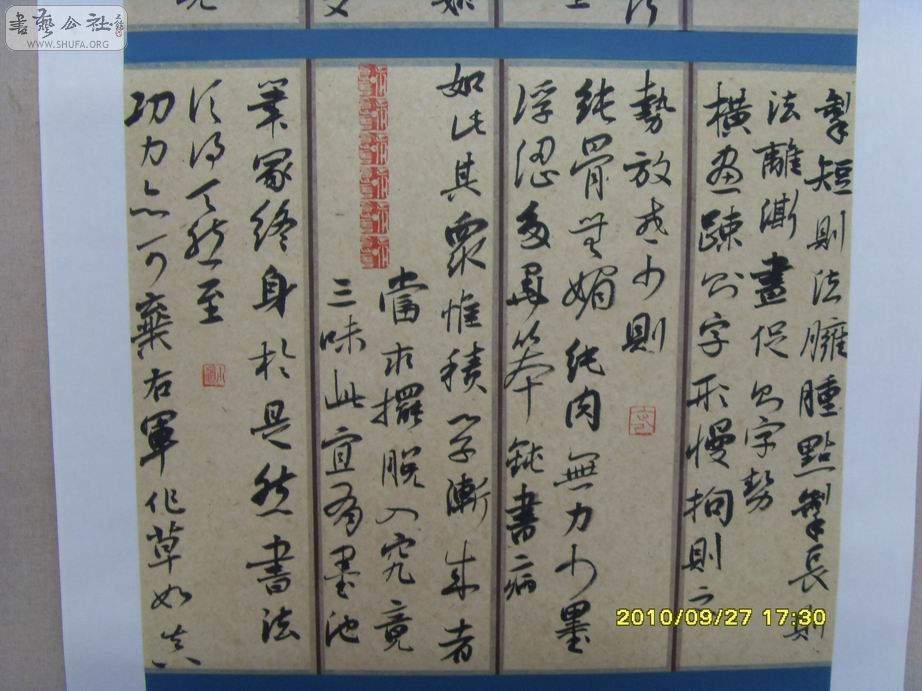 書藝公社
WWW.SHUFA.ORG
掣短則法臃腫點掣長則
法離澌畫促則字勢
橫畫疎則字形慢拘則乏
勢放又少則
純骨無媚純肉無力少墨
浮澀多墨笨鈍書病
如此其衆惟積學漸成者
當求擺脱入究竟
三味此宜有墨池
筆冢終身於是然書法
須得天然至
功力亦可棄右軍作草如真
2010/09/27 17:30